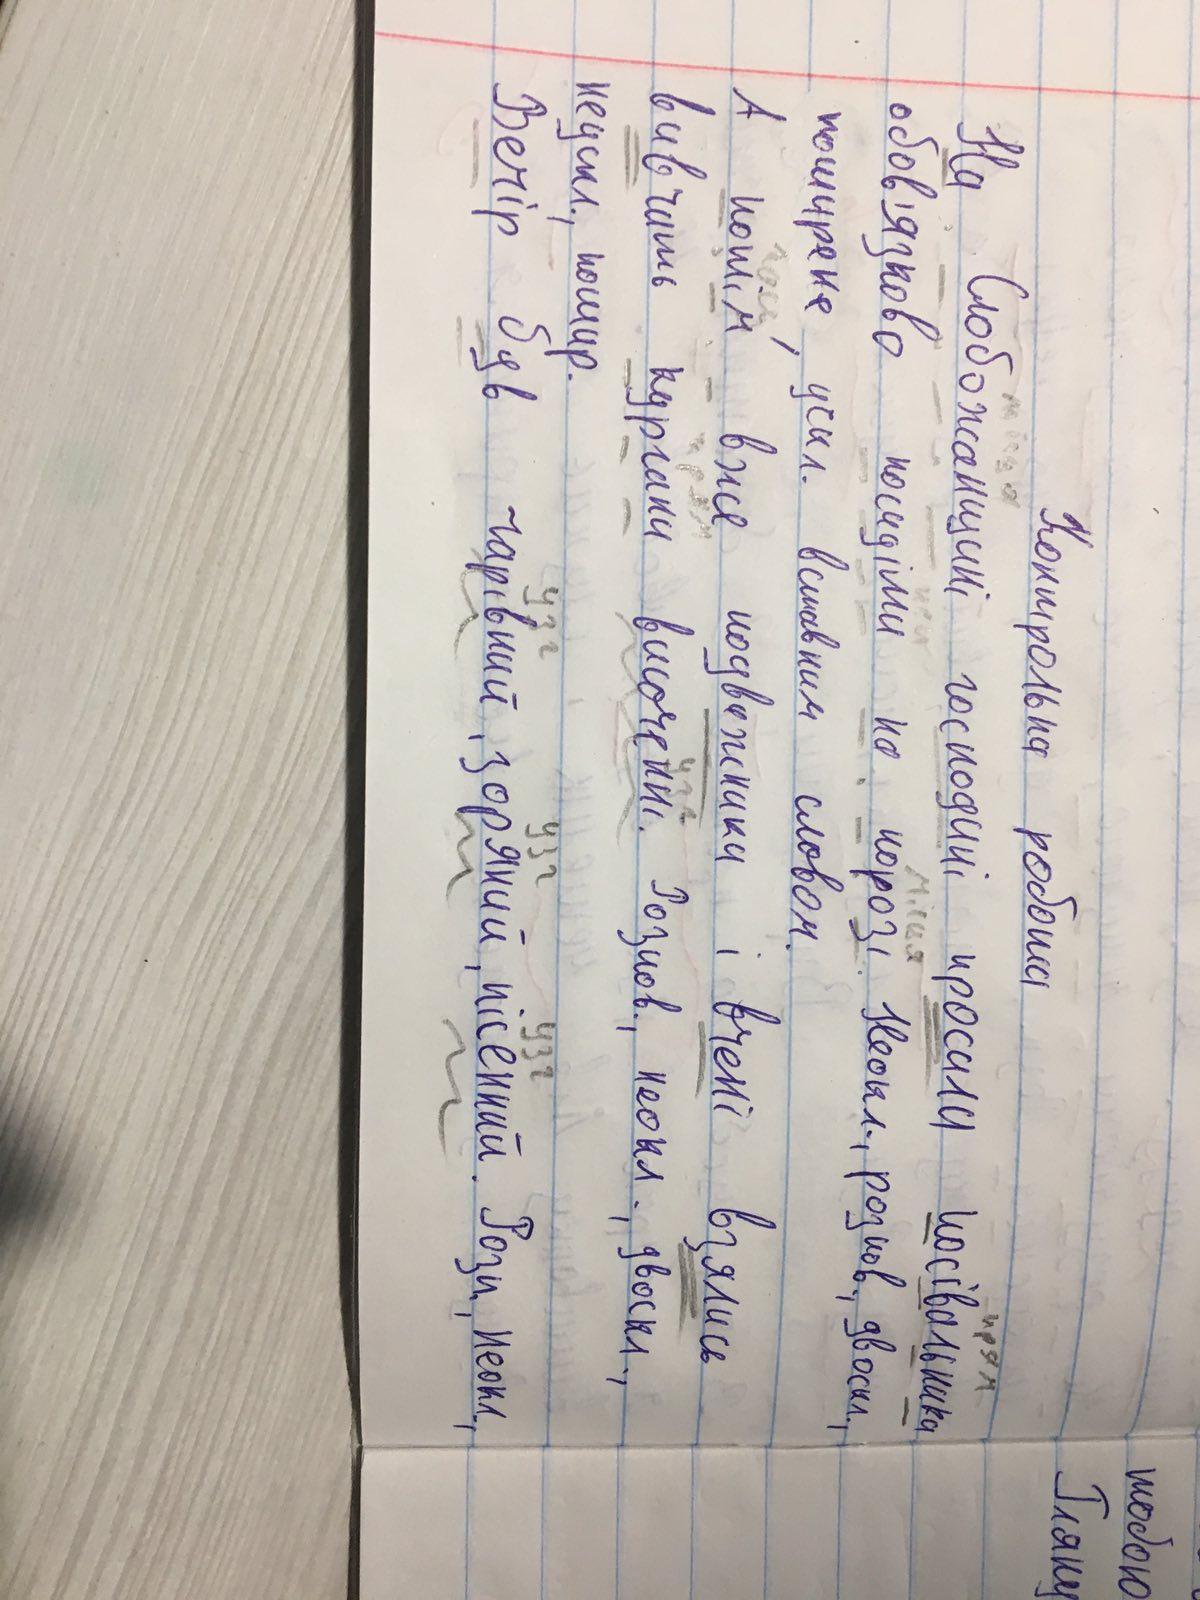 Контрольна робота
місця прям
На Слобожанщині господині просили посівальника
місця
обов'язково посидіти на порозі. Неокл., розпов., двоскл.,
поширене, ускл. вставним словом.
А потім, вже подвижники і вчені взялись
прям узг
вивчать кургани височенні. Розпов., неокл., двоскл.,
неускл., пошир.
узг узг узг
Вечір був чарівний, зоряний, пісенний. Розп., Неокл.,
тобою
Гляну